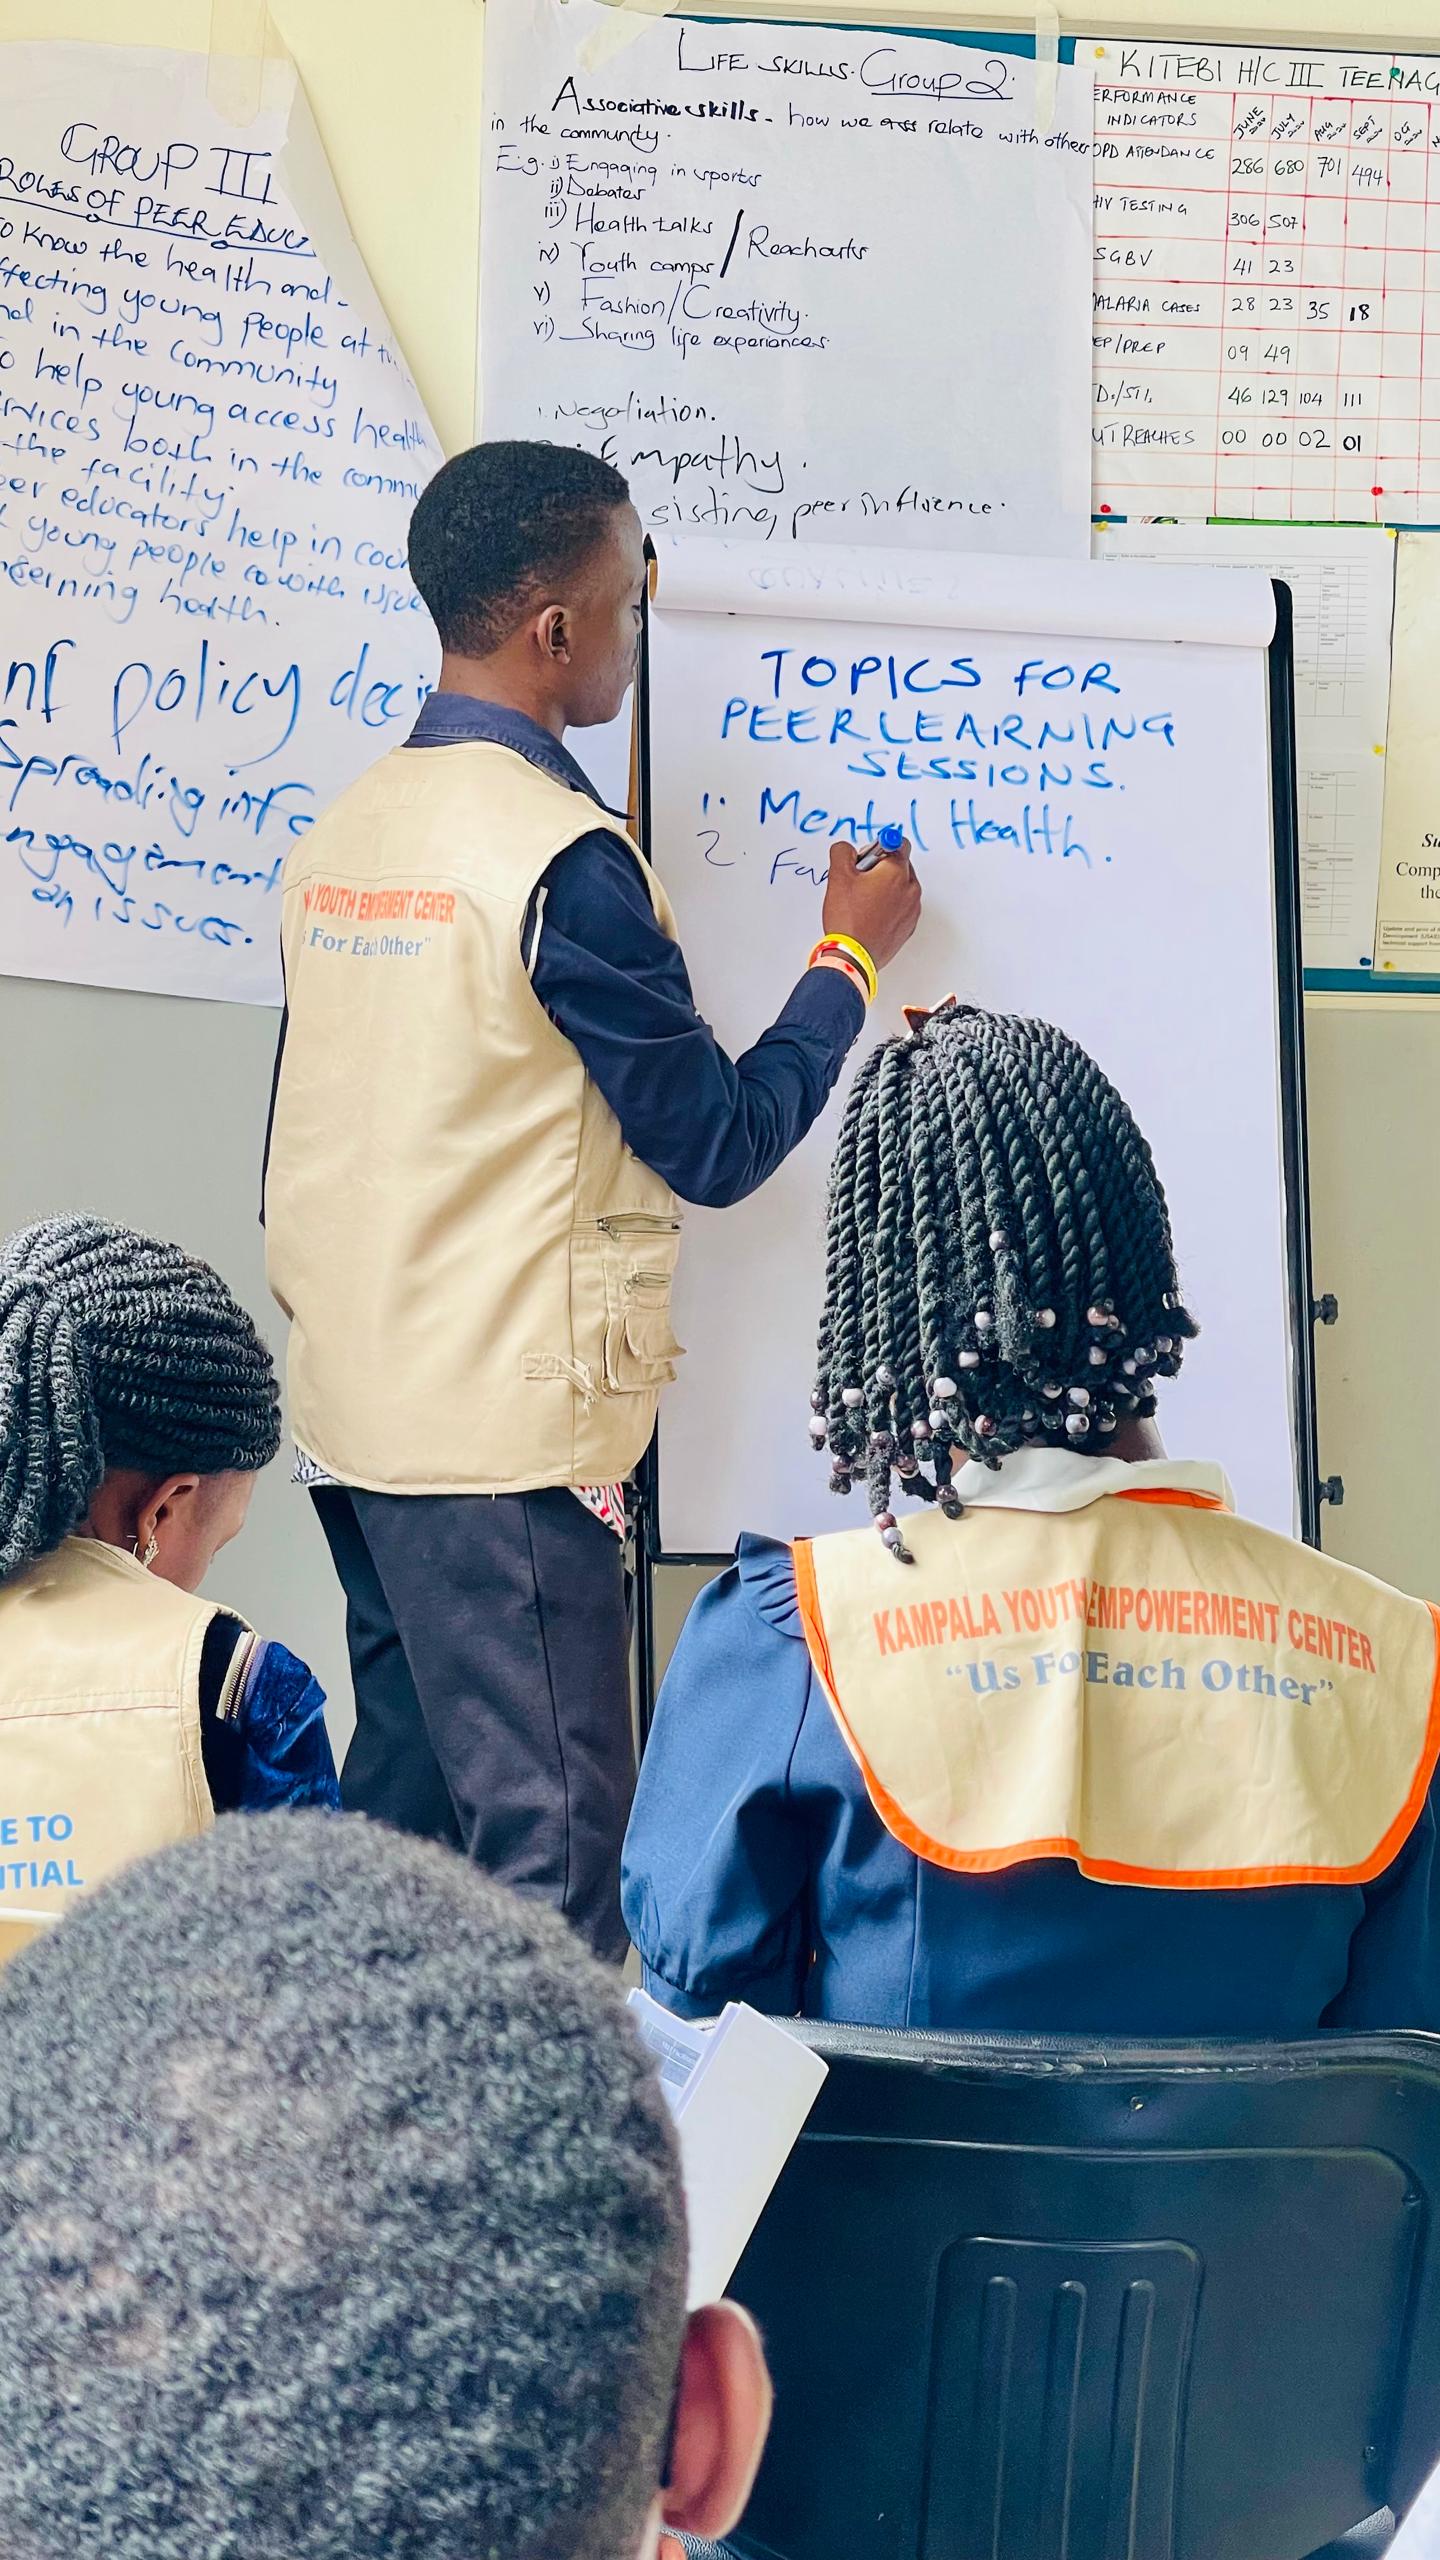 GROUP III
ROLES OF PEER EDUC
know the health and
ffecting young people at
nd in the community
help young access health
rvices both in the commu
the facility.
er educators help in
young people with issue
health.
inf policy deci
Spreading info
ngagement
on issues.
LIFE SKILLS. Group 2.
Associative skills - how we relate with others
in the community.
E.g. i) Engaging in sports
ii) Debates
iii) Health talks / Reachouts
iv) Youth camps
v) Fashion/Creativity.
vi) Sharing life experiences.
1. Negotiation.
Empathy.
sisting peer influence.
KITEBI H/C III TEENAG
ERFORMANCE INDICATORS JUNE JULY AUG SEPT OCT
OPD ATTENDANCE 286 680 701 494
HIV TESTING 306 507
SGBV 41 23
MALARIA CASES 28 23 35 18
EP/PREP 09 49
D./STI. 46 129 104 111
UTREACHES 00 00 02 01
TOPICS FOR
PEER LEARNING
SESSIONS.
1. Mental Health.
2. Fa
Su
Comp
the
YOUTH EMPOWERMENT CENTER
For Each Other"
KAMPALA YOUTH EMPOWERMENT CENTER
"Us For Each Other"
E TO
NTIAL